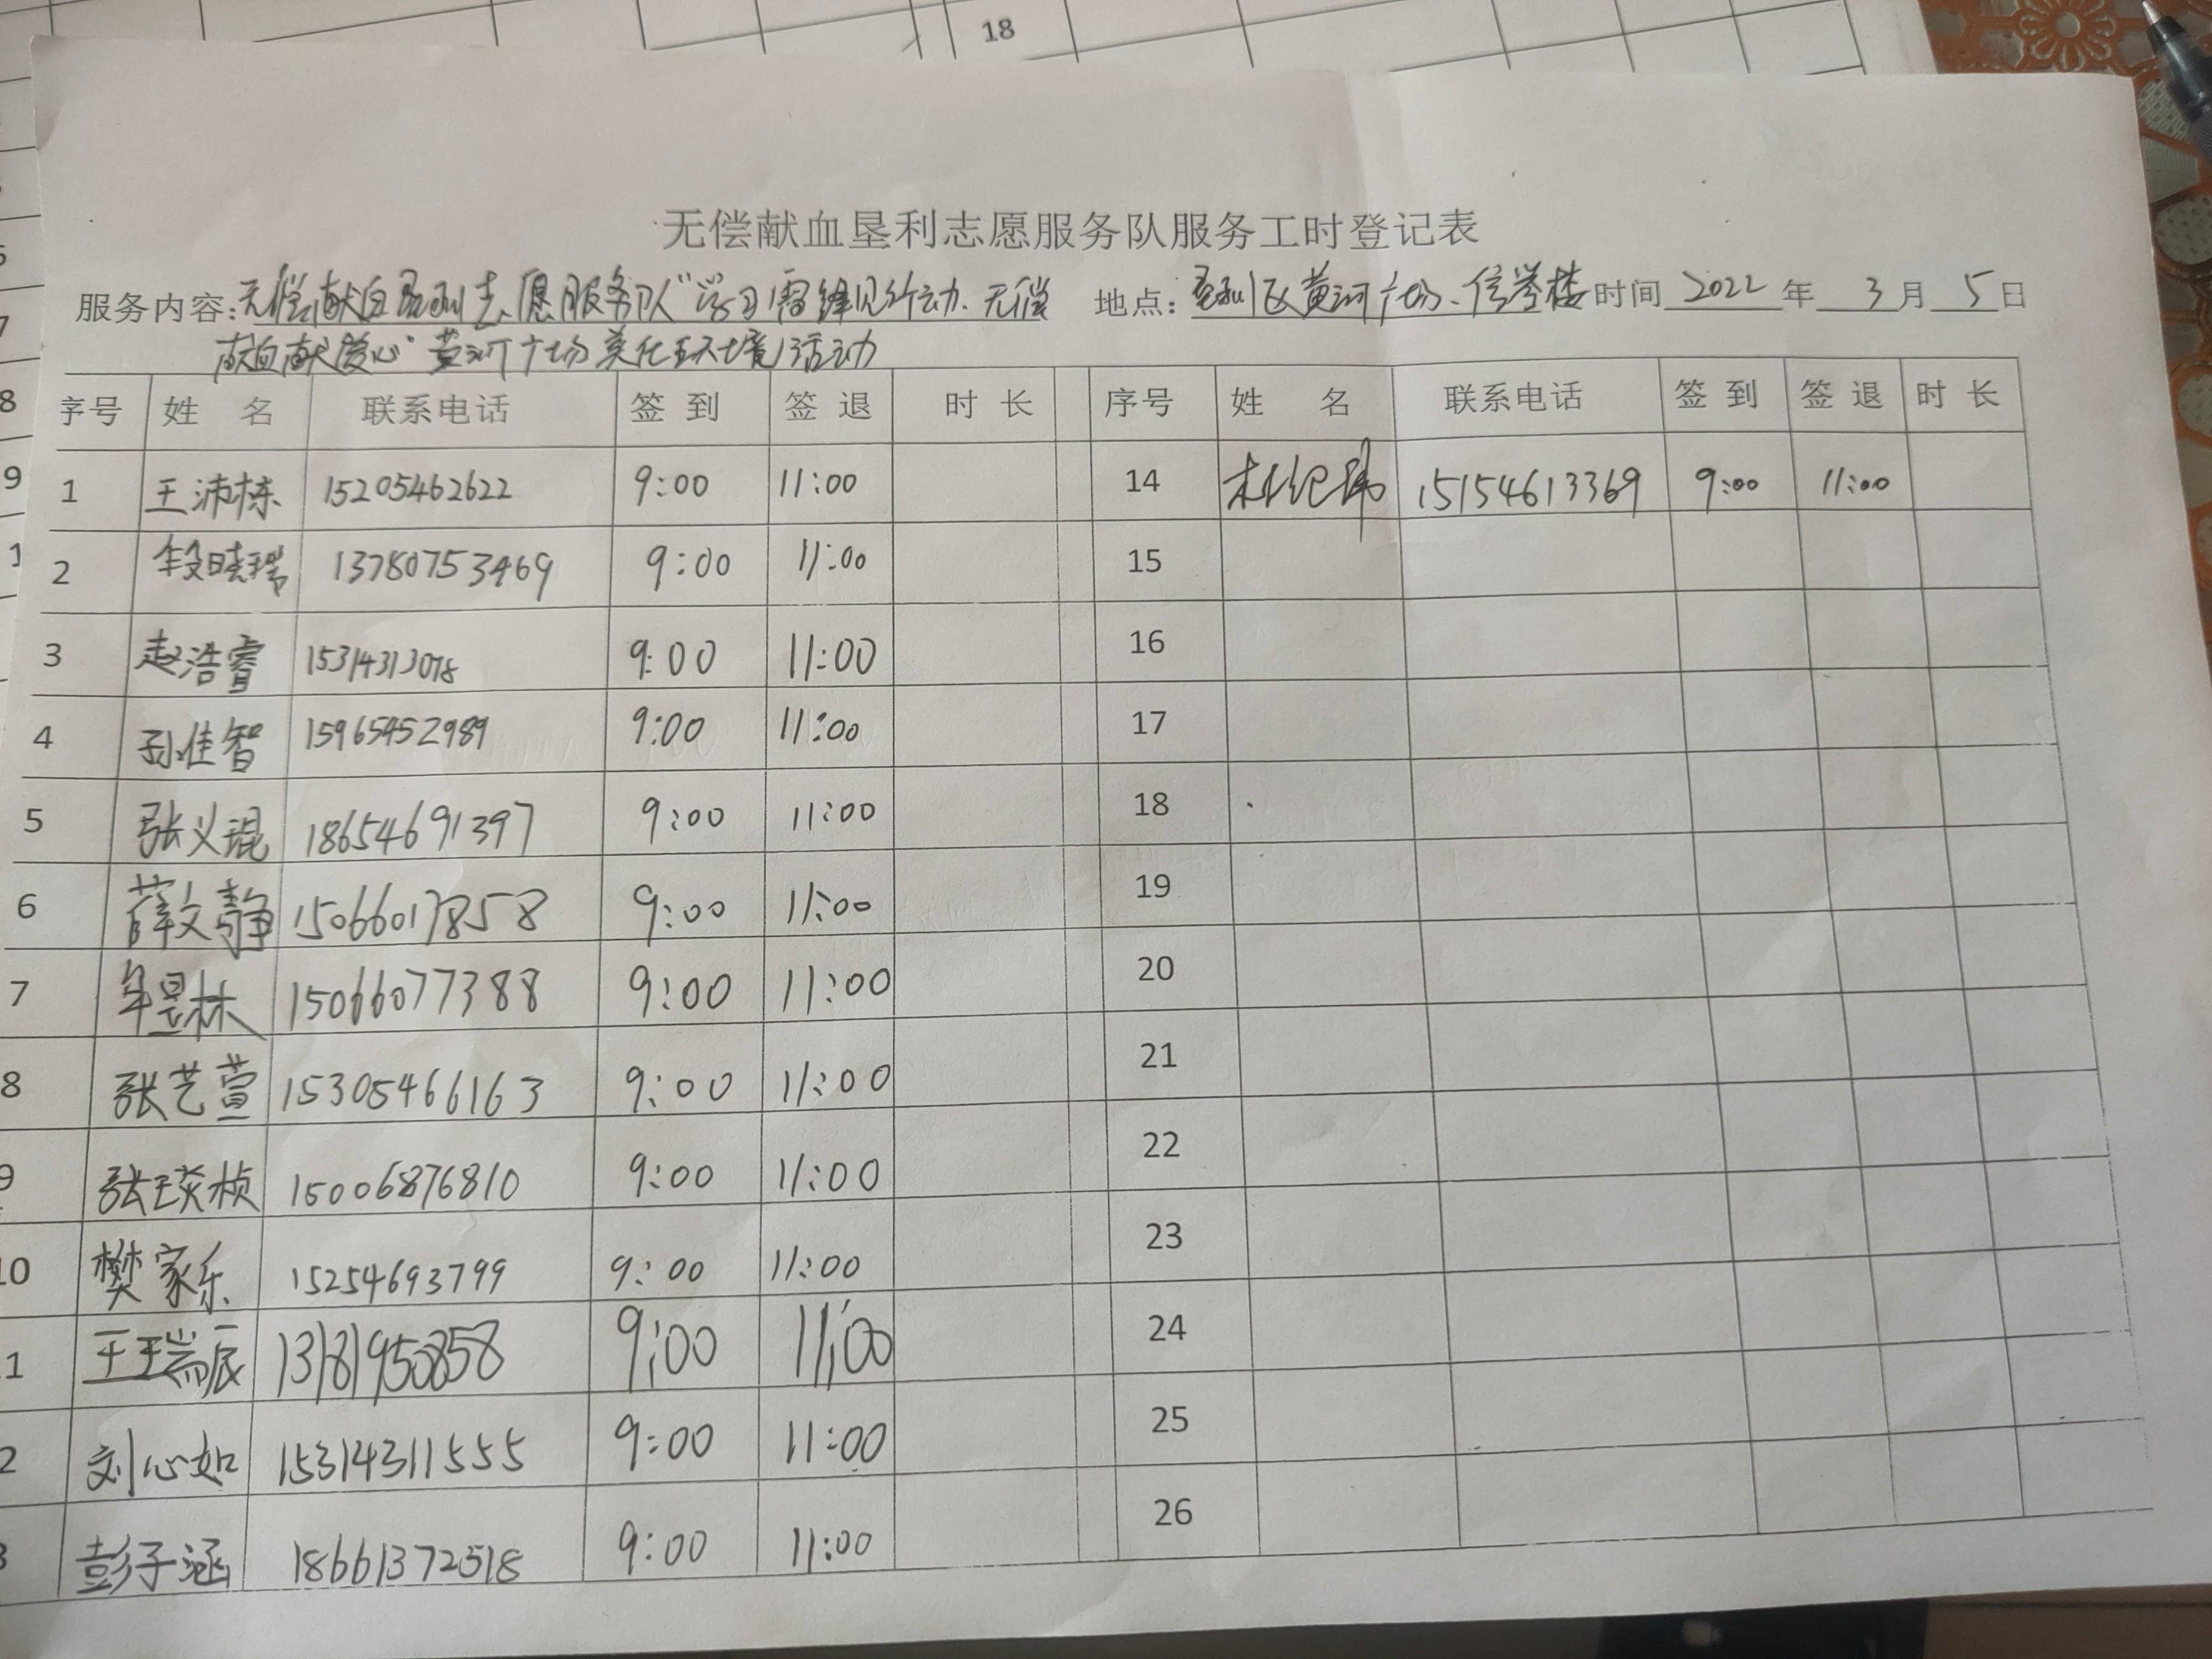 18
无偿献血垦利志愿服务队服务工时登记表
服务内容:无偿献血垦利志愿服务队"学习雷锋见行动.无偿 地点:垦利区黄河广场、信誉楼 时间 2022 年 3 月 5 日
献血献爱心"黄河广场美化环境活动
序号 姓 名 联系电话 签 到 签 退 时 长 序号 姓 名 联系电话 签 到 签 退 时 长
1 王沛栋 15205462622 9:00 11:00 14 15154613369 9:00 11:00
2 段晓瑞 13780753469 9:00 11:00 15
3 赵浩睿 15314313078 9:00 11:00 16
4 孙佳智 15965452989 9:00 11:00 17
5 张义琨 18654691397 9:00 11:00 18
6 薛文静 15066017858 9:00 11:00 19
7 牟昱林 15066077388 9:00 11:00 20
8 张艺萱 15305466163 9:00 11:00 21
9 张瑛桢 15006876810 9:00 11:00 22
10 樊家乐 15254693799 9:00 11:00 23
1 王瑞辰 13181950858 9:00 11:00 24
2 刘心如 15314311555 9:00 11:00 25
3 彭子涵 18661372518 9:00 11:00 26